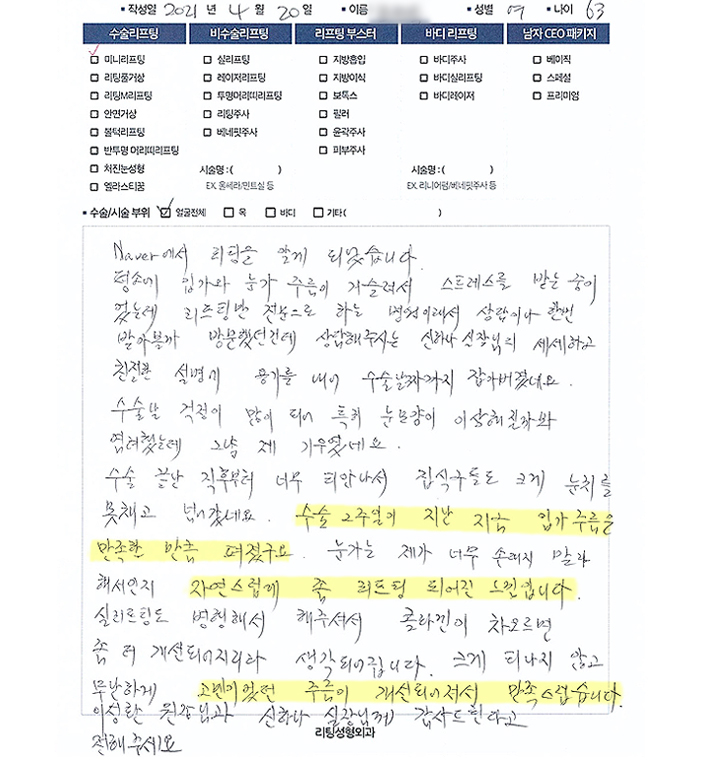 • 작성일 2021 년 4 월 20 일 • 이름 • 성별 여 • 나이 63
수술리프팅 비수술리프팅 리프팅 부스터 바디 리프팅 남자 CEO 패키지
미니리프팅 실리프팅 지방흡입 바디주사 베이직
리팅풀거상 레이저리프팅 지방이식 바디실리프팅 스페셜
리팅M리프팅 투명머리띠리프팅 보톡스 바디레이저 프리미엄
안면거상 리팅주사 필러
볼턱리프팅 베네핏주사 윤곽주사
반투명 머리띠리프팅 피부주사
처진눈성형 시술명 : ( ) 시술명 : ( )
엘라스티꿈 EX. 울쎄라/민트실 등 EX. 리니어펌/베네핏주사 등
• 수술/시술 부위 얼굴전체 목 바디 기타 ( )
Naver에서 리팅을 알게 되었습니다.
평소에 입가와 눈가 주름이 거슬려서 스트레스를 받는 중이
었는데 리프팅만 전문으로 하는 병원이래서 상담이나 한번
받아볼까 방문했던건데 상담해주시는 신하나 실장님의 세세하고
친절한 설명에 용기를 내어 수술날짜까지 잡아버렸네요.
수술날 걱정이 많이 되어 특히 눈모양이 이상해질까봐
염려했는데 그냥 제 기우였네요.
수술 끝난 직후부터 너무 티안나서 집식구들도 크게 눈치를
못채고 넘어갔네요. 수술 2주일이 지난 지금 입가 주름은
만족한 만큼 펴졌구요. 눈가는 제가 너무 손대지 말라
해서인지 자연스럽게 좀 리프팅 되어진 느낌입니다.
실리프팅도 병행해서 해주셔서 콜라겐이 차오르면
좀 더 개선되어지리라 생각되어집니다. 크게 티나지 않고
무난하게 고민이었던 주름이 개선되어져서 만족스럽습니다.
이성환 원장님과 신하나 실장님께 감사드린다고
전해주세요
리팅성형외과